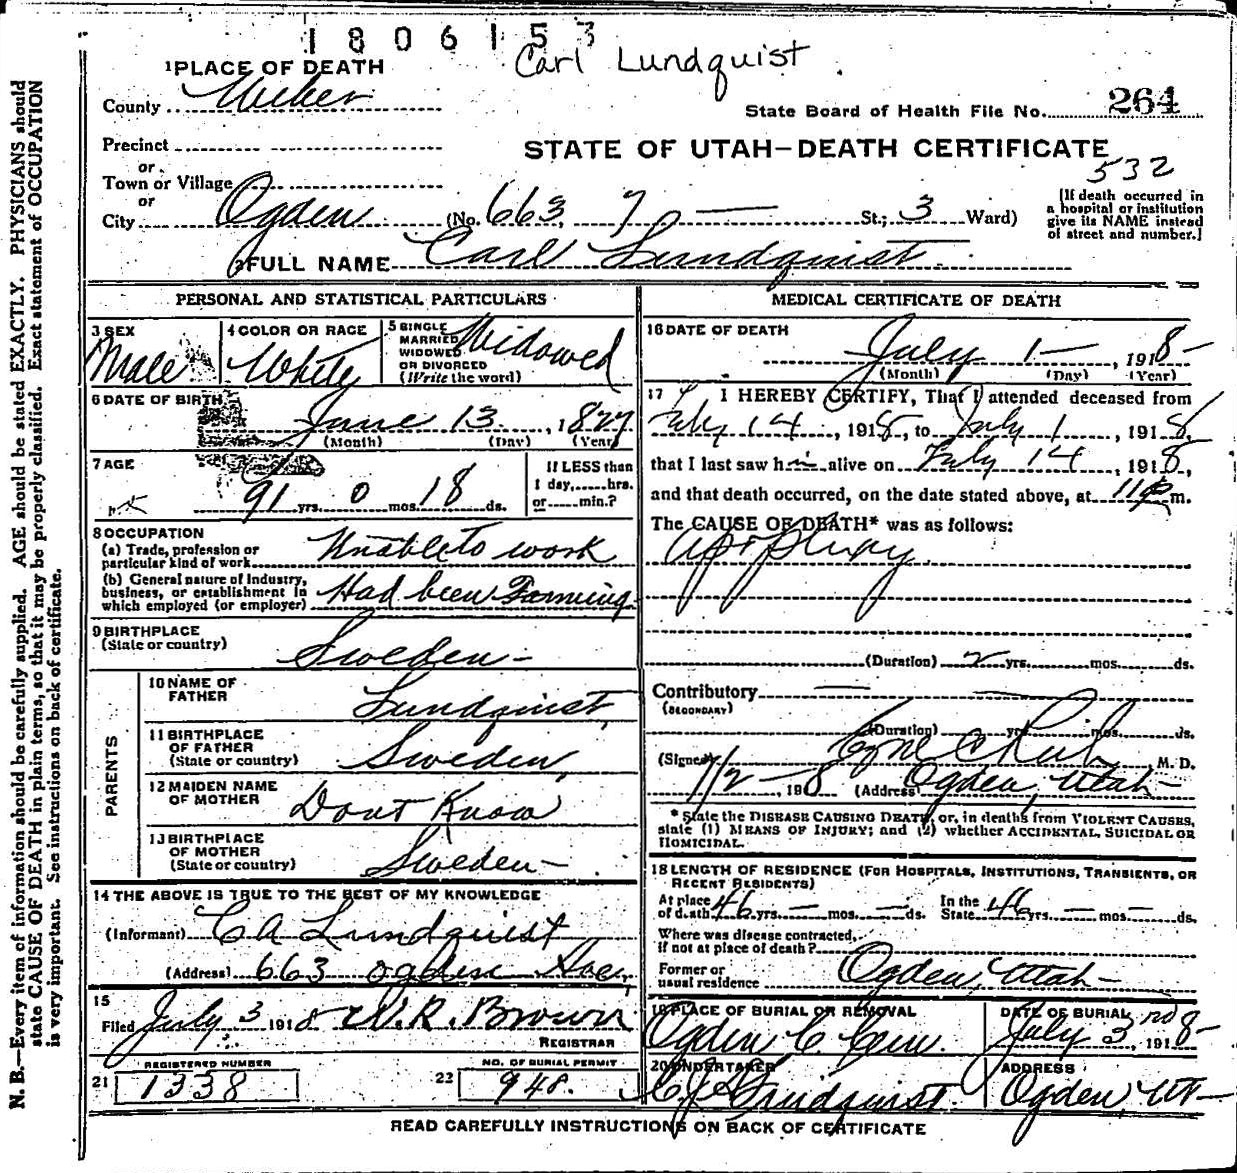 1806153
Carl Lundquist
1 PLACE OF DEATH
County Weber
State Board of Health File No. 264
Precinct
STATE OF UTAH—DEATH CERTIFICATE
532
or
Town or Village
or
City Ogden (No. 663, St.; 3 Ward)
[If death occurred in
a hospital or institution
give its NAME instead
of street and number.]
2 FULL NAME Carl Lundquist
PERSONAL AND STATISTICAL PARTICULARS
3 SEX
Male
4 COLOR OR RACE
White
5 SINGLE
MARRIED
WIDOWED
OR DIVORCED
(Write the word)
Widowed
6 DATE OF BIRTH
June 13, 1827
(Month) (Day) (Year)
7 AGE
91 yrs. 0 mos. 18 ds.
If LESS than
1 day, hrs.
or min.?
8 OCCUPATION
(a) Trade, profession or
particular kind of work Unable to work
(b) General nature of Industry,
business, or establishment in
which employed (or employer) Had been Farming
9 BIRTHPLACE
(State or country)
Sweden
PARENTS
10 NAME OF
FATHER
Lundquist
11 BIRTHPLACE
OF FATHER
(State or country)
Sweden
12 MAIDEN NAME
OF MOTHER
Dont Know
13 BIRTHPLACE
OF MOTHER
(State or country)
Sweden
14 THE ABOVE IS TRUE TO THE BEST OF MY KNOWLEDGE
(Informant) C A Lundquist
(Address) 663 Ogden
15
Filed July 3 1918 W. R. Brown
REGISTRAR
REGISTERED NUMBER
21 1338
NO. OF BURIAL PERMIT
22 948
MEDICAL CERTIFICATE OF DEATH
16 DATE OF DEATH
July 1, 1918
(Month) (Day) (Year)
17 I HEREBY CERTIFY, That I attended deceased from
14, 1918, to July 1, 1918,
that I last saw him alive on 14, 1918,
and that death occurred, on the date stated above, at 11 m.
The CAUSE OF DEATH* was as follows:
Apoplexy
(Duration) 2 yrs. mos. ds.
Contributory
(SECONDARY)
(Duration) yrs. mos. ds.
(Signed) M. D.
1/2, 1918 (Address) Ogden, Utah
* State the DISEASE CAUSING DEATH, or, in deaths from VIOLENT CAUSES,
state (1) MEANS OF INJURY; and (2) whether ACCIDENTAL, SUICIDAL OR
HOMICIDAL.
18 LENGTH OF RESIDENCE (FOR HOSPITALS, INSTITUTIONS, TRANSIENTS, OR
RECENT RESIDENTS)
At place
of death 46 yrs. mos. ds.
In the
State 46 yrs. mos. ds.
Where was disease contracted,
if not at place of death?
Former or
usual residence Ogden, Utah
19 PLACE OF BURIAL OR REMOVAL
Ogden C. Cem.
DATE OF BURIAL
July 3rd, 1918
20 UNDERTAKER
Lindquist
ADDRESS
Ogden, Ut
READ CAREFULLY INSTRUCTIONS ON BACK OF CERTIFICATE
N. B.—Every item of information should be carefully supplied. AGE should be stated EXACTLY. PHYSICIANS should
state CAUSE OF DEATH in plain terms, so that it may be properly classified. Exact statement of OCCUPATION
is very important. See instructions on back of certificate.